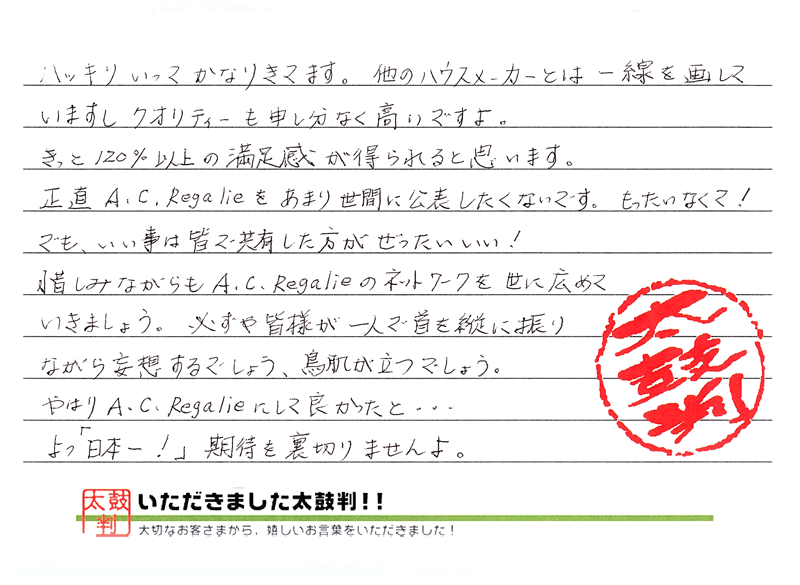 ハッキリいってかなりきてます。他のハウスメーカーとは一線を画して
いますしクオリティーも申し分なく高いですよ。
きっと120%以上の満足感が得られると思います。
正直A.C.Regalieをあまり世間に公表したくないです。もったいなくて！
でも、いい事は皆で共有した方がぜったいいい！
惜しみながらもA.C.Regalieのネットワークを世に広めて
いきましょう。必ずや皆様が一人で首を縦に振り
ながら妄想するでしょう、鳥肌が立つでしょう。
やはりA.C.Regalieにして良かったと・・・
よっ「日本一！」期待を裏切りませんよ。
太鼓判
太鼓判
いただきました太鼓判!!
大切なお客さまから、嬉しいお言葉をいただきました！